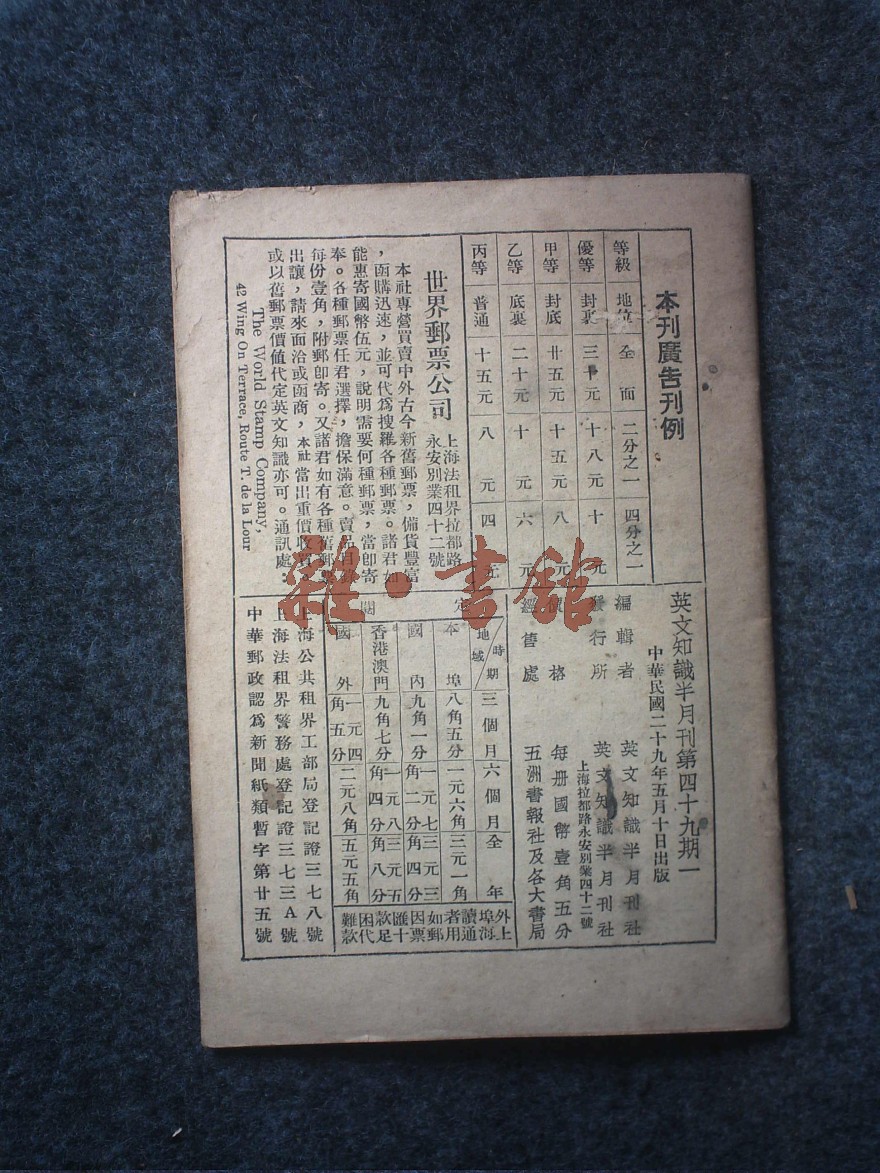 本刊廣告刊例
等級 地位 全面 二分之一 四分之一
優等 封裏 三十元 十八元 十元
甲等 封底 廿五元 十五元 八元
乙等 底裏 二十元 十元 六元
丙等 普通 十五元 八元 四元
世界郵票公司
上海法租界拉都路
永安別業四十二號
本社專營買賣中外古今新舊郵票，備貨豐富
，函購迅速，並可代爲搜羅各種郵票。諸君如
能惠寄國幣伍元，說明需要何種郵票，當卽寄
奉。各種郵票任君選擇，擔保滿意。賣品目錄
每份壹角，附郵卽寄。又諸君如有各種舊郵票
出讓，請來面洽或函商，本社當出重價收買
或以舊郵票價値代定英文知識亦可。通訊處：
The World Stamp Company,
42 Wing On Terrace, Route T. de la Lour
英文知識半月刊第四十九期
中華民國二十九年五月十日出版
編輯者 英文知識半月刊社
發行所 英文知識半月刊社
上海拉都路永安別業四十二號
價格 每册國幣壹角五分
經售處 五洲書報社及各大書局
定閱
時期 地域 三個月 六個月 全年
本埠 八角五分 一元六角 三元一角
國內 九角一分 一元七角二分 三元三角四分
香港澳門 九角七分 一元八角四分 三元五角八分
國外 一元四角五分 二元八角 五元五角
外埠讀者如因匯款困難
上海通用郵票十足代款
上海公共租界工部局登記證三七八號
上海法租界警務處登記證三七三A號
中華郵政認爲新聞紙類暫字第廿五號
雜·書館